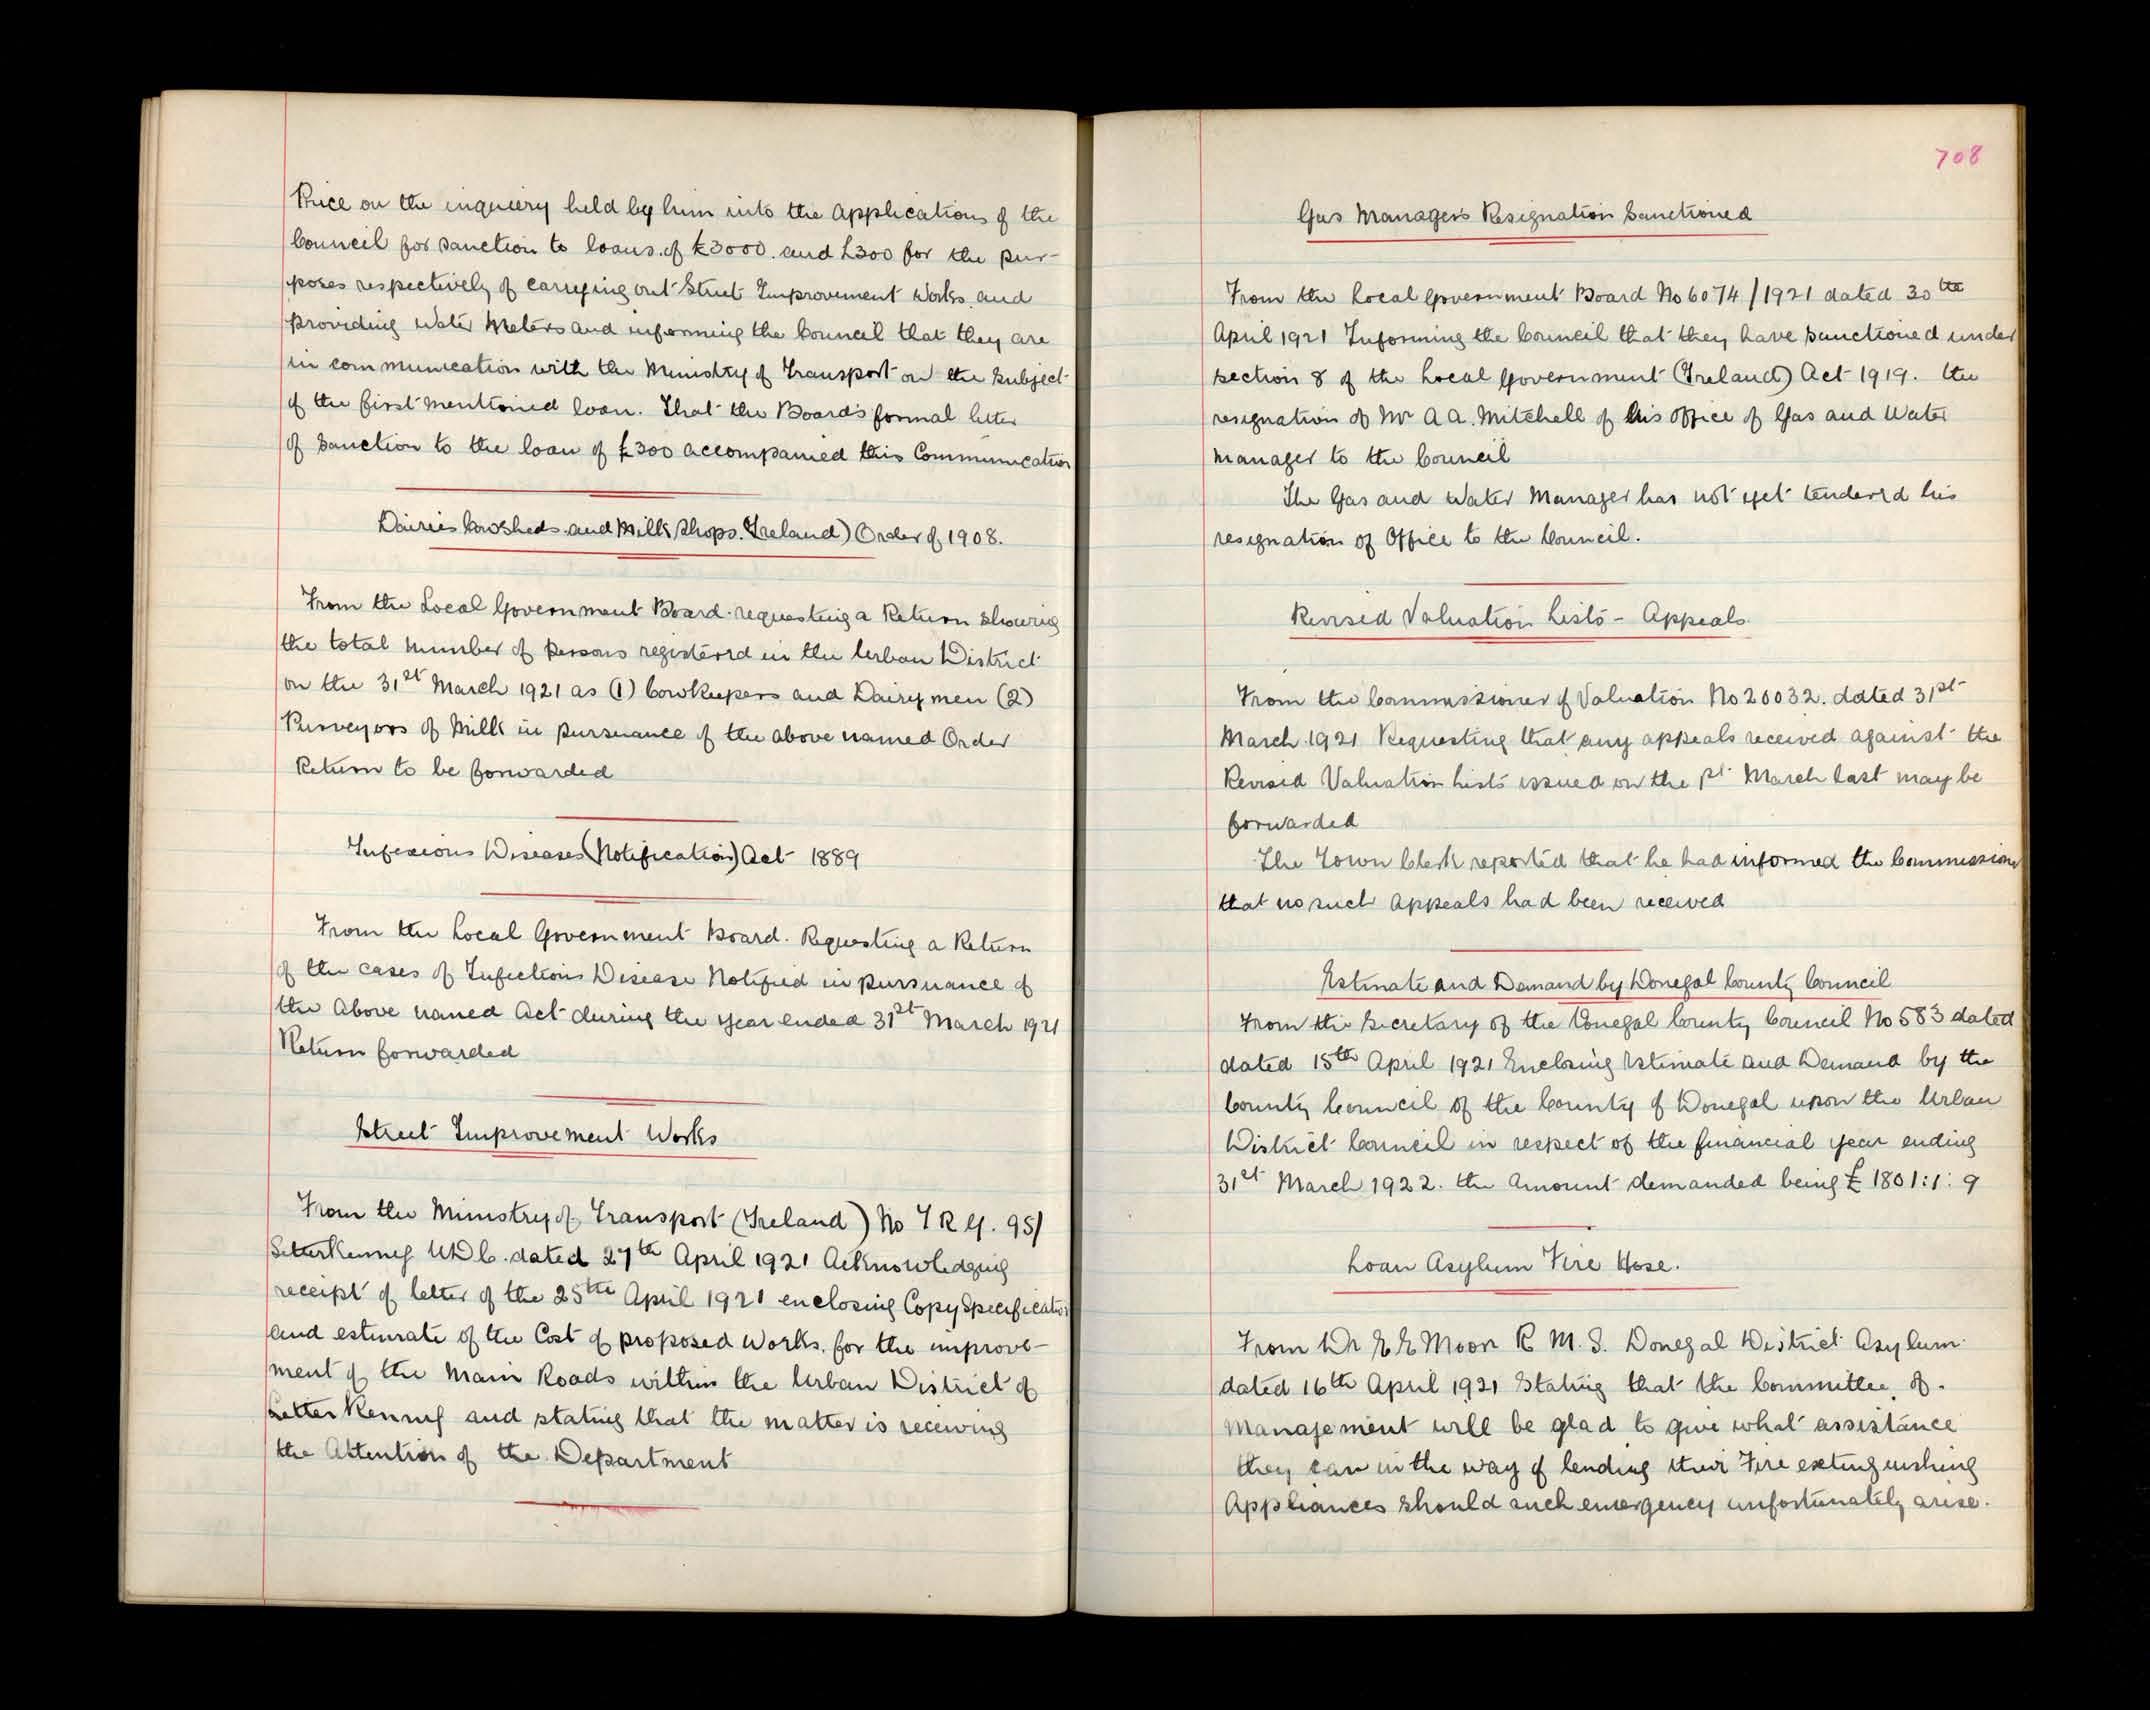 Price on the inquiery held by him into the Applications of the
Council for sanction to loans of £3000 and £300 for the pur-
poses respectively of carrying out Street Improvement Works and
providing Water Meters and informing the Council that they are
in communication with the Ministry of Transport on the subject
of the first mentioned loan. That the Board's formal letter
of Sanction to the loan of £300 accompanied this Communication
Dairies Cowsheds and Milk Shops. Ireland) Order of 1908.
From the Local Government Board requesting a Return showing
the total number of persons registerd in the Urban District
on the 31st March 1921 as (1) Cowkeepers and Dairymen (2)
Purveyors of Milk in pursuance of the above named Order
Return to be forwarded
Infexious Diseases (Notification) Act 1889
From the Local Government Board. Requesting a Return
of the cases of Infectious Disease Notified in pursuance of
the Above named Act during the year ended 31st March 1921
Return forwarded
Street Improvement Works
From the Ministry of Transport (Ireland) No I R Y. 95/
Letterkenny UDC. dated 27th April 1921 Acknowledging
receipt of letter of the 25th April 1921 enclosing Copy Specification
and estimate of the Cost of proposed Works. for the improve-
ment of the Main Roads within the Urban District of
Letterkenny and stating that the matter is receiving
the Attention of the Department
708
Gas Managers Resignation Sanctioned
From the Local Government Board No 6074/1921 dated 30th
April 1921 Informing the Council that they have sanctioned under
section 8 of the Local Government (Ireland) Act 1919. the
resignation of Mr A A. Mitchell of his office of Gas and Water
Manager to the Council
The Gas and Water Manager has not yet tenderd his
resignation of Office to the Council.
Revised Valuation Lists - Appeals.
From the Commissioner of Valuation No 20032. dated 31st
March 1921 Requesting that any appeals received against the
Revised Valuation Lists issued on the 1st March last may be
forwarded
The Town Clerk reported that he had informed the Commissioner
that no such Appeals had been received
Estimate and Demand by Donegal County Council
From the Secretary of the Donegal County Council No 583 dated
dated 15th April 1921 Enclosing Estimate and Demand by the
County Council of the County of Donegal upon the Urban
District Council in respect of the financial year ending
31st March 1922. the Amount demanded being £1801:1:9
Loan Asylum Fire Hose.
From Dr E E Moore R. M. S. Donegal District Asylum
dated 16th April 1921 Stating that the Committee of
Management will be glad to give what assistance
they can in the way of lending their Fire extinguishing
Appliances should such emergency unfortunately arise.